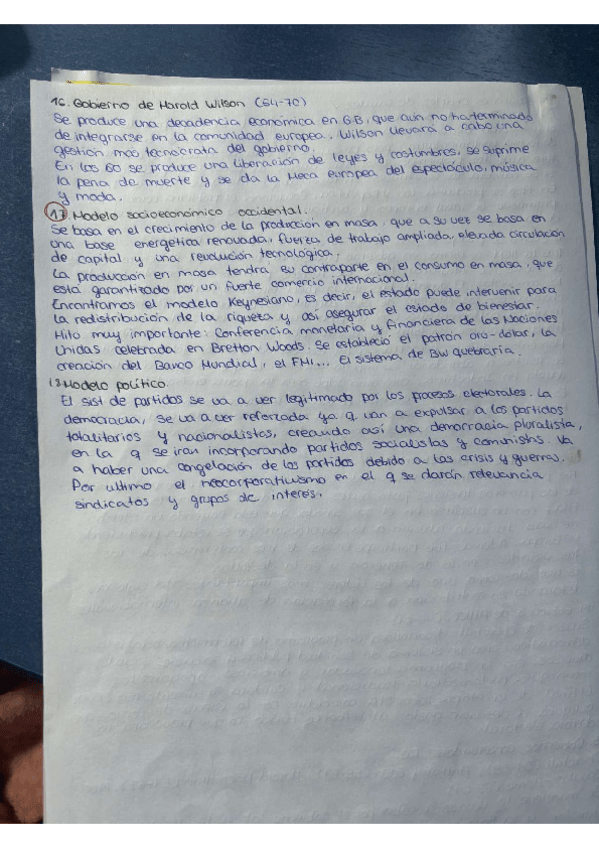 16. Gobierno de Harold Wilson (64-70)
Se produce una decadencia económica en G.B, que aún no ha terminado
de integrarse en la comunidad europea. Wilson llevará a cabo una
gestión mas tecnócrata del gobierno.
En los 60 se produce una liberación de leyes y costumbres, se suprime
la pena de muerte y se da la Meca europea del espectáculo, música
y moda.
17 Modelo socioeconómico occidental.
Se basa en el crecimiento de la producción en masa, que a su vez se basa en
una base energética renovada, fuerza de trabajo ampliada, elevada circulación
de capital y una revolución tecnológica.
La producción en masa tendrá su contraparte en el consumo en masa, que
está garantizado por un fuerte comercio internacional.
Encontramos el modelo Keynesiano, es decir, el estado puede intervenir para
la redistribución de la riqueza y así asegurar el estado de bienestar.
Hito muy importante: Conferencia monetaria y financiera de las Naciones
Unidas celebrada en Bretton Woods. Se estableció el patrón oro-dólar, la
creación del Banco Mundial, el FMI... El sistema de BW quebraría.
18 Modelo político.
El sist de partidos se va a ver legitimado por los procesos electorales. La
democracia, se va a ver reforzada ya q van a expulsar a los partidos
totalitarios y nacionalistas, creando así una democracia pluralista,
en la q se iran incorporando partidos socialistas y comunistas. Va
a haber una congelación de los partidos debido a las crisis y guerras.
Por ultimo el neocorporativismo en el q se darán relevancia
sindicatos y grupos de interés.